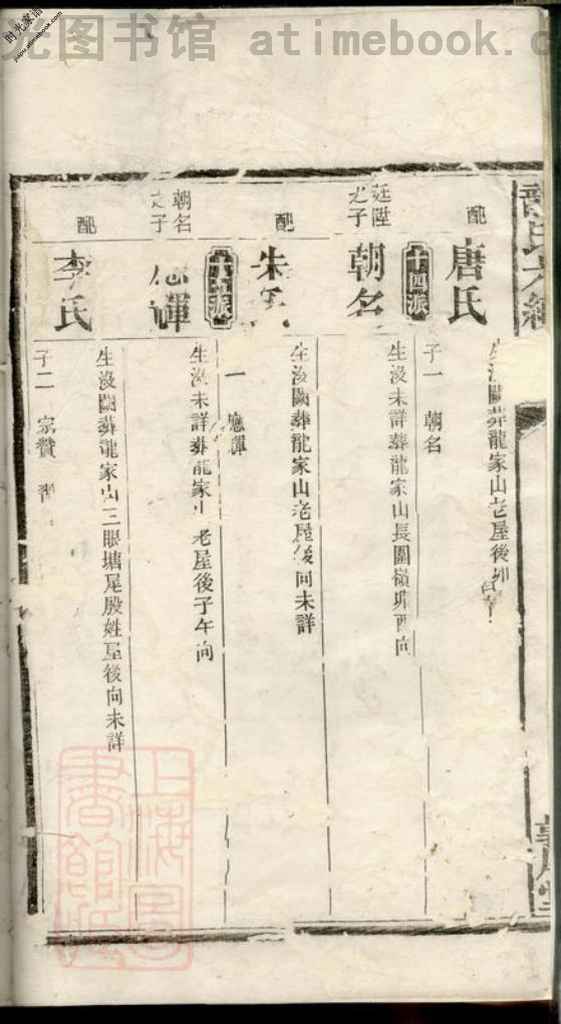 光图书馆 atimebook.c
时光家谱
氏
配
唐氏
生没闕葬龍家山老屋後卯
子一 朝名
十四派
廷陞之子
朝名
生没未詳葬龍家山長圍嶺卯酉向
配
朱氏
生没闕葬龍家山老屋後向未詳
一 應輝
朝名之子
輝
生没未詳葬龍家山老屋後子午向
配
李氏
生没闕葬龍家山三眼塘尾殷姓屋後向未詳
子二 宗贊
上海圖書館藏